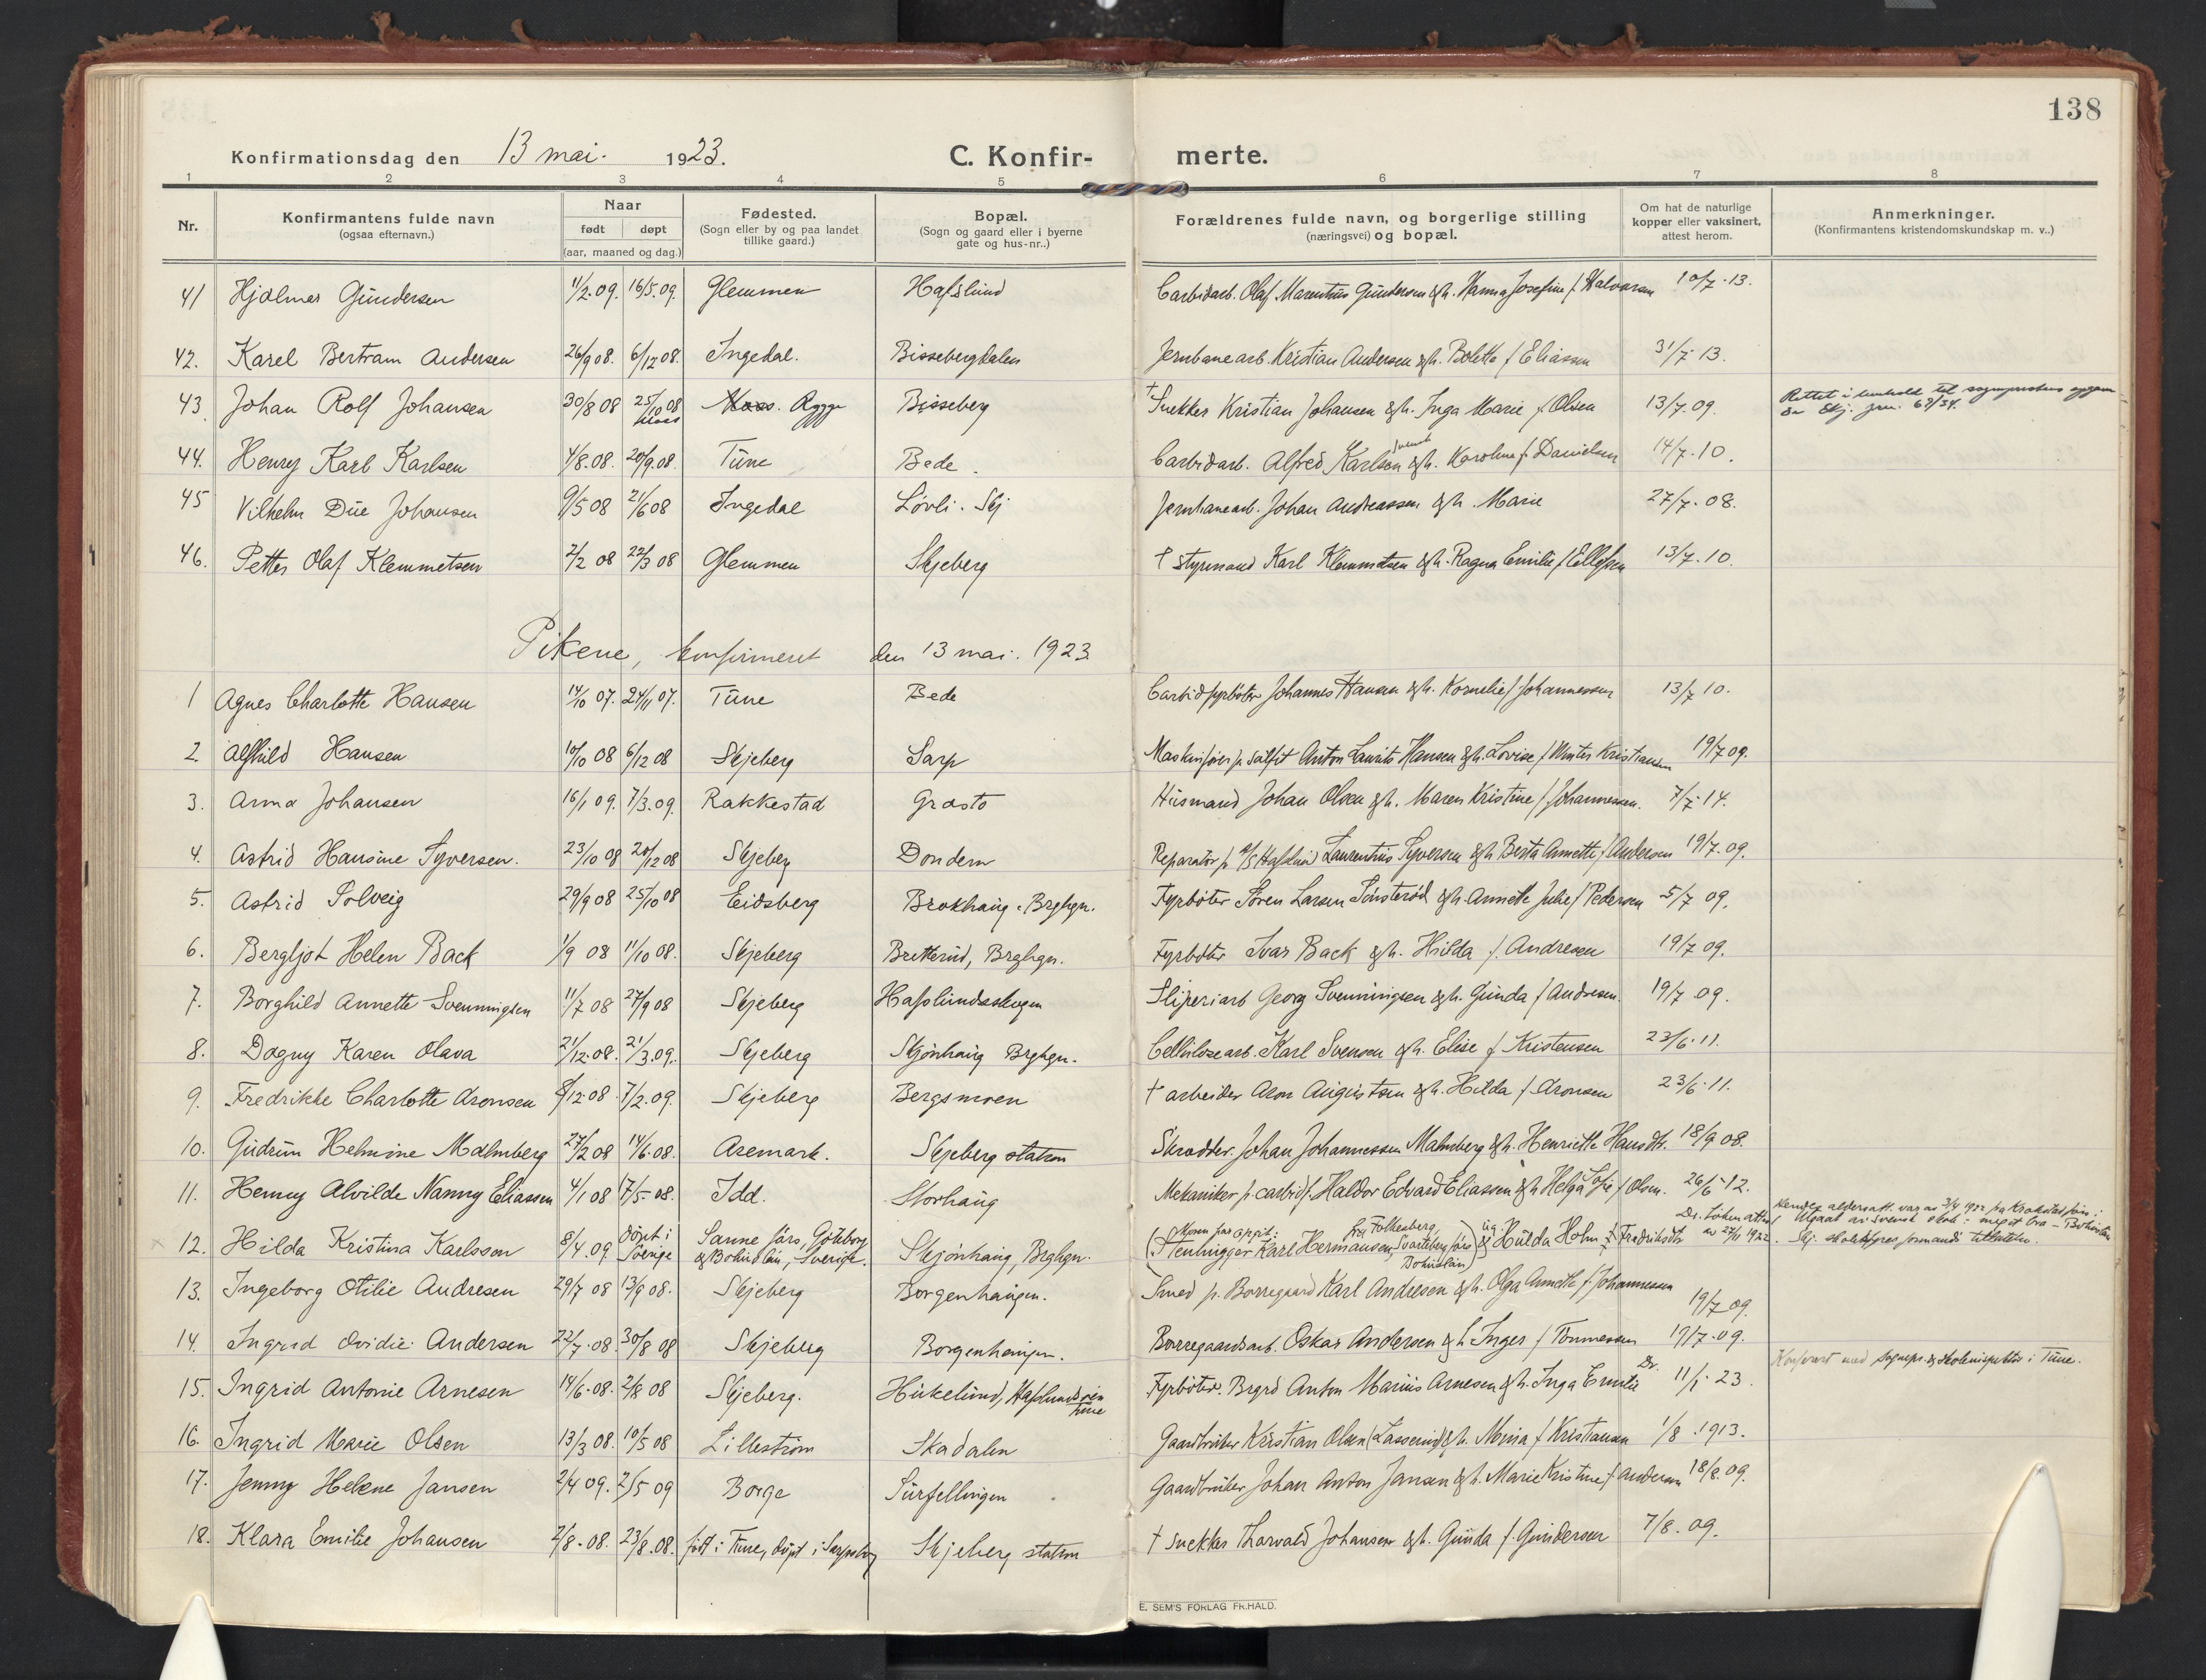 138
Konfirmationsdag den 13 mai. 1923. C. Konfirmerte.
1 2 3 4 5 6 7 8
Nr. Konfirmantens fulde navn (ogsaa efternavn.) Naar født døpt (aar, maaned og dag.) Fødested. (Sogn eller by og paa landet tillike gaard.) Bopæl. (Sogn og gaard eller i byerne gate og hus-nr..) Forældrenes fulde navn, og borgerlige stilling (næringsvei) og bopæl. Om hat de naturlige kopper eller vaksinert, attest herom. Anmerkninger. (Konfirmantens kristendomskundskap m. v..)
41 Hjalmer Gundersen 11/2.09. 16/5.09. Glemmen Hafslund Carbidarb. Olaf Marentius Gundersen & h. Hanna Josefine f. Halvorsen 10/7.13.
42. Karel Bertram Andersen 26/9 08. 6/12 08. Ingedal. Bissebergdalen Jernbanearb. Kristian Andersen & h. Bolette f. Eliassen 31/7 13.
43. Johan Rolf Johansen 30/8 08 25/10 08 Moss Moss. Rygge Bisseberg † Snekker Kristian Johansen & h. Inga Marie f. Olsen 13/7.09. Rettet i henhold til sogneprestens
44. Henry Karl Karlsen 4/8.08. 20/9.08. Tune Bede. Carbidarb. Alfred Karlsen svensk & h. Karoline f. Danielsen 14/7.10.
45 Vilhelm Due Johansen 9/5 08 21/6 08 Ingedal Løvli. Skj Jernbanearb. Johan Andreassen & h. Marie 27/7.08.
46. Petter Olaf Klemmetsen 2/2 08 22/3 08 Glemmen Skjeberg † styrmand Karl Klemmetsen & h. Ragna Emilie f. Ellefsen 13/7.10.
Pikene, konfirmeret den 13 mai. 1923
1 Agnes Charlotte Hansen 14/10 07. 24/11 07. Tune Bede Carbidfyrbøter Johannes Hansen & h. Kornelie f. Johannessen 13/7 10.
2 Alfhild Hansen 10/10 08 6/12 08 Skjeberg Sarp Anton Laurits Hansen & h. Lovise f. Kristiansen 19/7 09.
3. Anna Johansen 16/1 09. 7/3.09. Rakkestad Grasto Husmand Johan Olsen & h. Maren Kristine f. Johannessen. 7/7.14.
4. Astrid Hansine Syversen. 23/10 08 20/12 08 Skjeberg Dondern Reparatør p. A/S Hafslund Laurentius Syversen & h Berta Annette f. Andersen 19/7.09.
5. Astrid Solveig 29/9 08 25/10 08 Eidsberg Brokhaug. Brghgn. Fyrbøter Søren Larsen & h. Annette Julie f. Pedersen 5/7 09.
6. Bergljot Helen Back 1/9 08 11/10 08. Skjeberg Bretterud, Brghgn. Fyrbøter Ivar Back & h. Hilda f. Andresen 19/7 09.
7. Borghild Annette Svenningsen 11/7 08 27/9 08 Skjeberg Hafslundsskogen Sliperiarb Georg Svenningsen & h. Gunda f. Andresen. 19/7 09.
8. Dagny Karen Olava 21/12.08. 21/3.09. Skjeberg Skjønhaug Brghgn. Cellulosearb. Karl Svensen & h. Elise f. Kristensen 23/6.11.
9. Fredrikke Charlotte Aronsen 8/12.08 7/2.09. Skjeberg Bergsmoen † arbeider Aron Augustsen & h. Hilda f. Aronsen 23/6.11.
10. Gudrun Helmine Malmberg 27/2 08 14/6.08. Aremark. Skjeberg station Skrædder. Johan Johannessen Malmberg & h. Henriette Hansdtr. 18/9 08.
11. Henny Alvilde Nanny Eliassen 4/1 08 17/5.08. Idd. Storhaug Mekaniker p. carbidf. Haldor Edvard Eliassen & h Helga Sofie f. Olsen. 26/6.12.
12. Hilda Kristina Karlsson 8/4.09 døpt i Sverige Sanne førs, Göteborg & Bohuslän, Sverige. Skjønhaug, Brghgn. (Moren har opgit: Stenhugger Karl Hermansen, fra Falkenberg, Svarteborg førs Bohuslän) & ug. Hulda Holm f. Fredriksdtr
13. Ingeborg Otilie Andresen 29/7 08 13/9 08. Skjeberg Borgenhaugen. Smed p. Borregaard Karl Andresen & h. Olga Annette f. Johannessen 19/7 09.
14. Ingrid Ovidie Andersen 22/7.08. 30/8 08 Skjeberg Borgenhaugen. Borregaardsarb. Oskar Andersen & h Inger f. Tommesen 19/7.09.
15. Ingrid Antonie Arnesen 14/6.08. 2/8 08 Skjeberg. Hukelund, Hafslundsøen Tune Fyrbøter. Brgrd Anton Marius Arnesen & h. Inga Emilie Dr. 11/1.23. Konferert med sognepr. & skoleinspektør i Tune.
16. Ingrid Marie Olsen 13/3 08. 10/5 08 Lillestrøm Skadalen Gaardbruker Kristian Olsen (Lasserud) & h. Mina f Kristiansen 1/8.1913.
17. Jenny Helene Jansen 2/4 09. 2/5 09 Borge Surfellingen Gaardbruker Johan Anton Jansen & h. Marie Kristine f. Andersen 18/8.09.
18. Klara Emilie Johansen 2/8.08. 23/8.08. født i Tune, døpt i Sarpsborg Skjeberg station † snekker Thorvald Johansen & h. Gunda f. Gundersen 7/8.09.
E. SEM'S FORLAG FR.HALD.